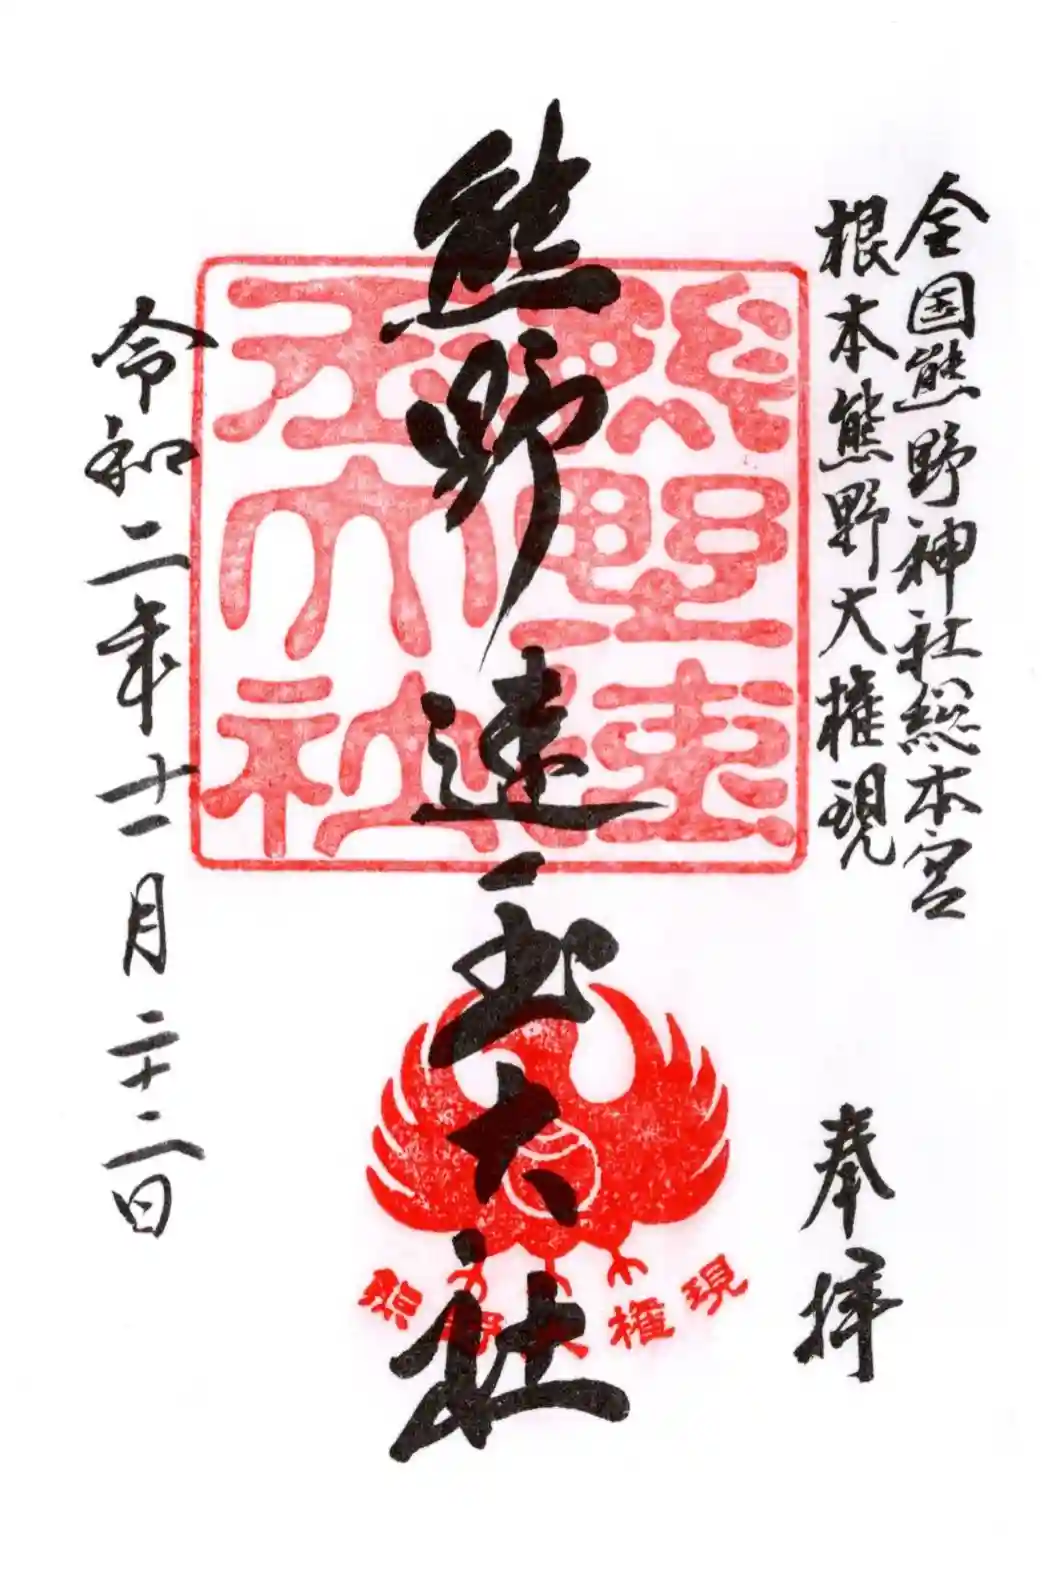 全国熊野神社総本宮
根本熊野大権現
奉拝
熊野速玉大社
令和二年十一月二十二日
熊野速玉大社
熊野大権現